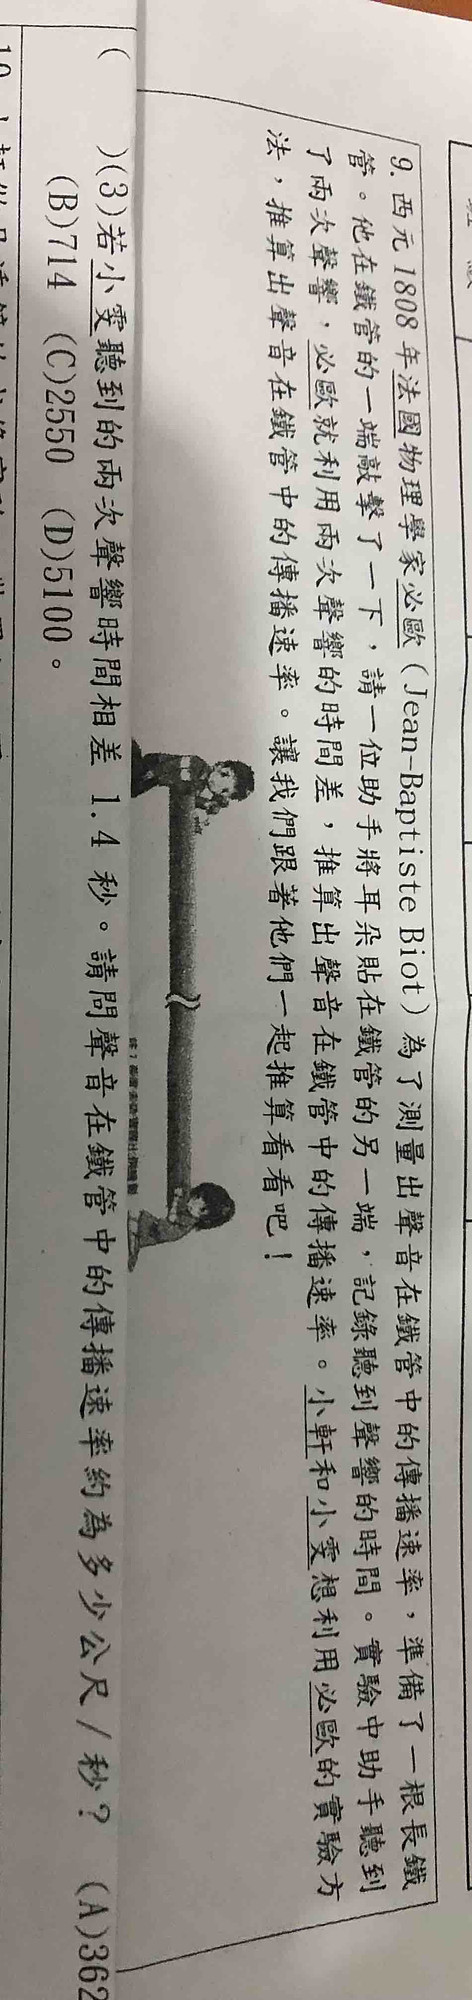 9. 西元1808年法國物理學家必歐(Jean-Baptiste Biot)為了測量出聲音在鐵管中的傳播速率，準備了一根長鐵
管。他在鐵管的一端敲擊了一下，請一位助手將耳朵貼在鐵管的另一端，記錄聽到聲響的時間。實驗中助手聽到
了兩次聲響，必歐就利用兩次聲響的時間差，推算出聲音在鐵管中的傳播速率。小軒和小雯想利用必歐的實驗方
法，推算出聲音在鐵管中的傳播速率。讓我們跟著他們一起推算看看吧！
( )(3)若小雯聽到的兩次聲響時間相差 1.4 秒。請問聲音在鐵管中的傳播速率約為多少公尺/秒？ (A)362
(B)714 (C)2550 (D)5100。